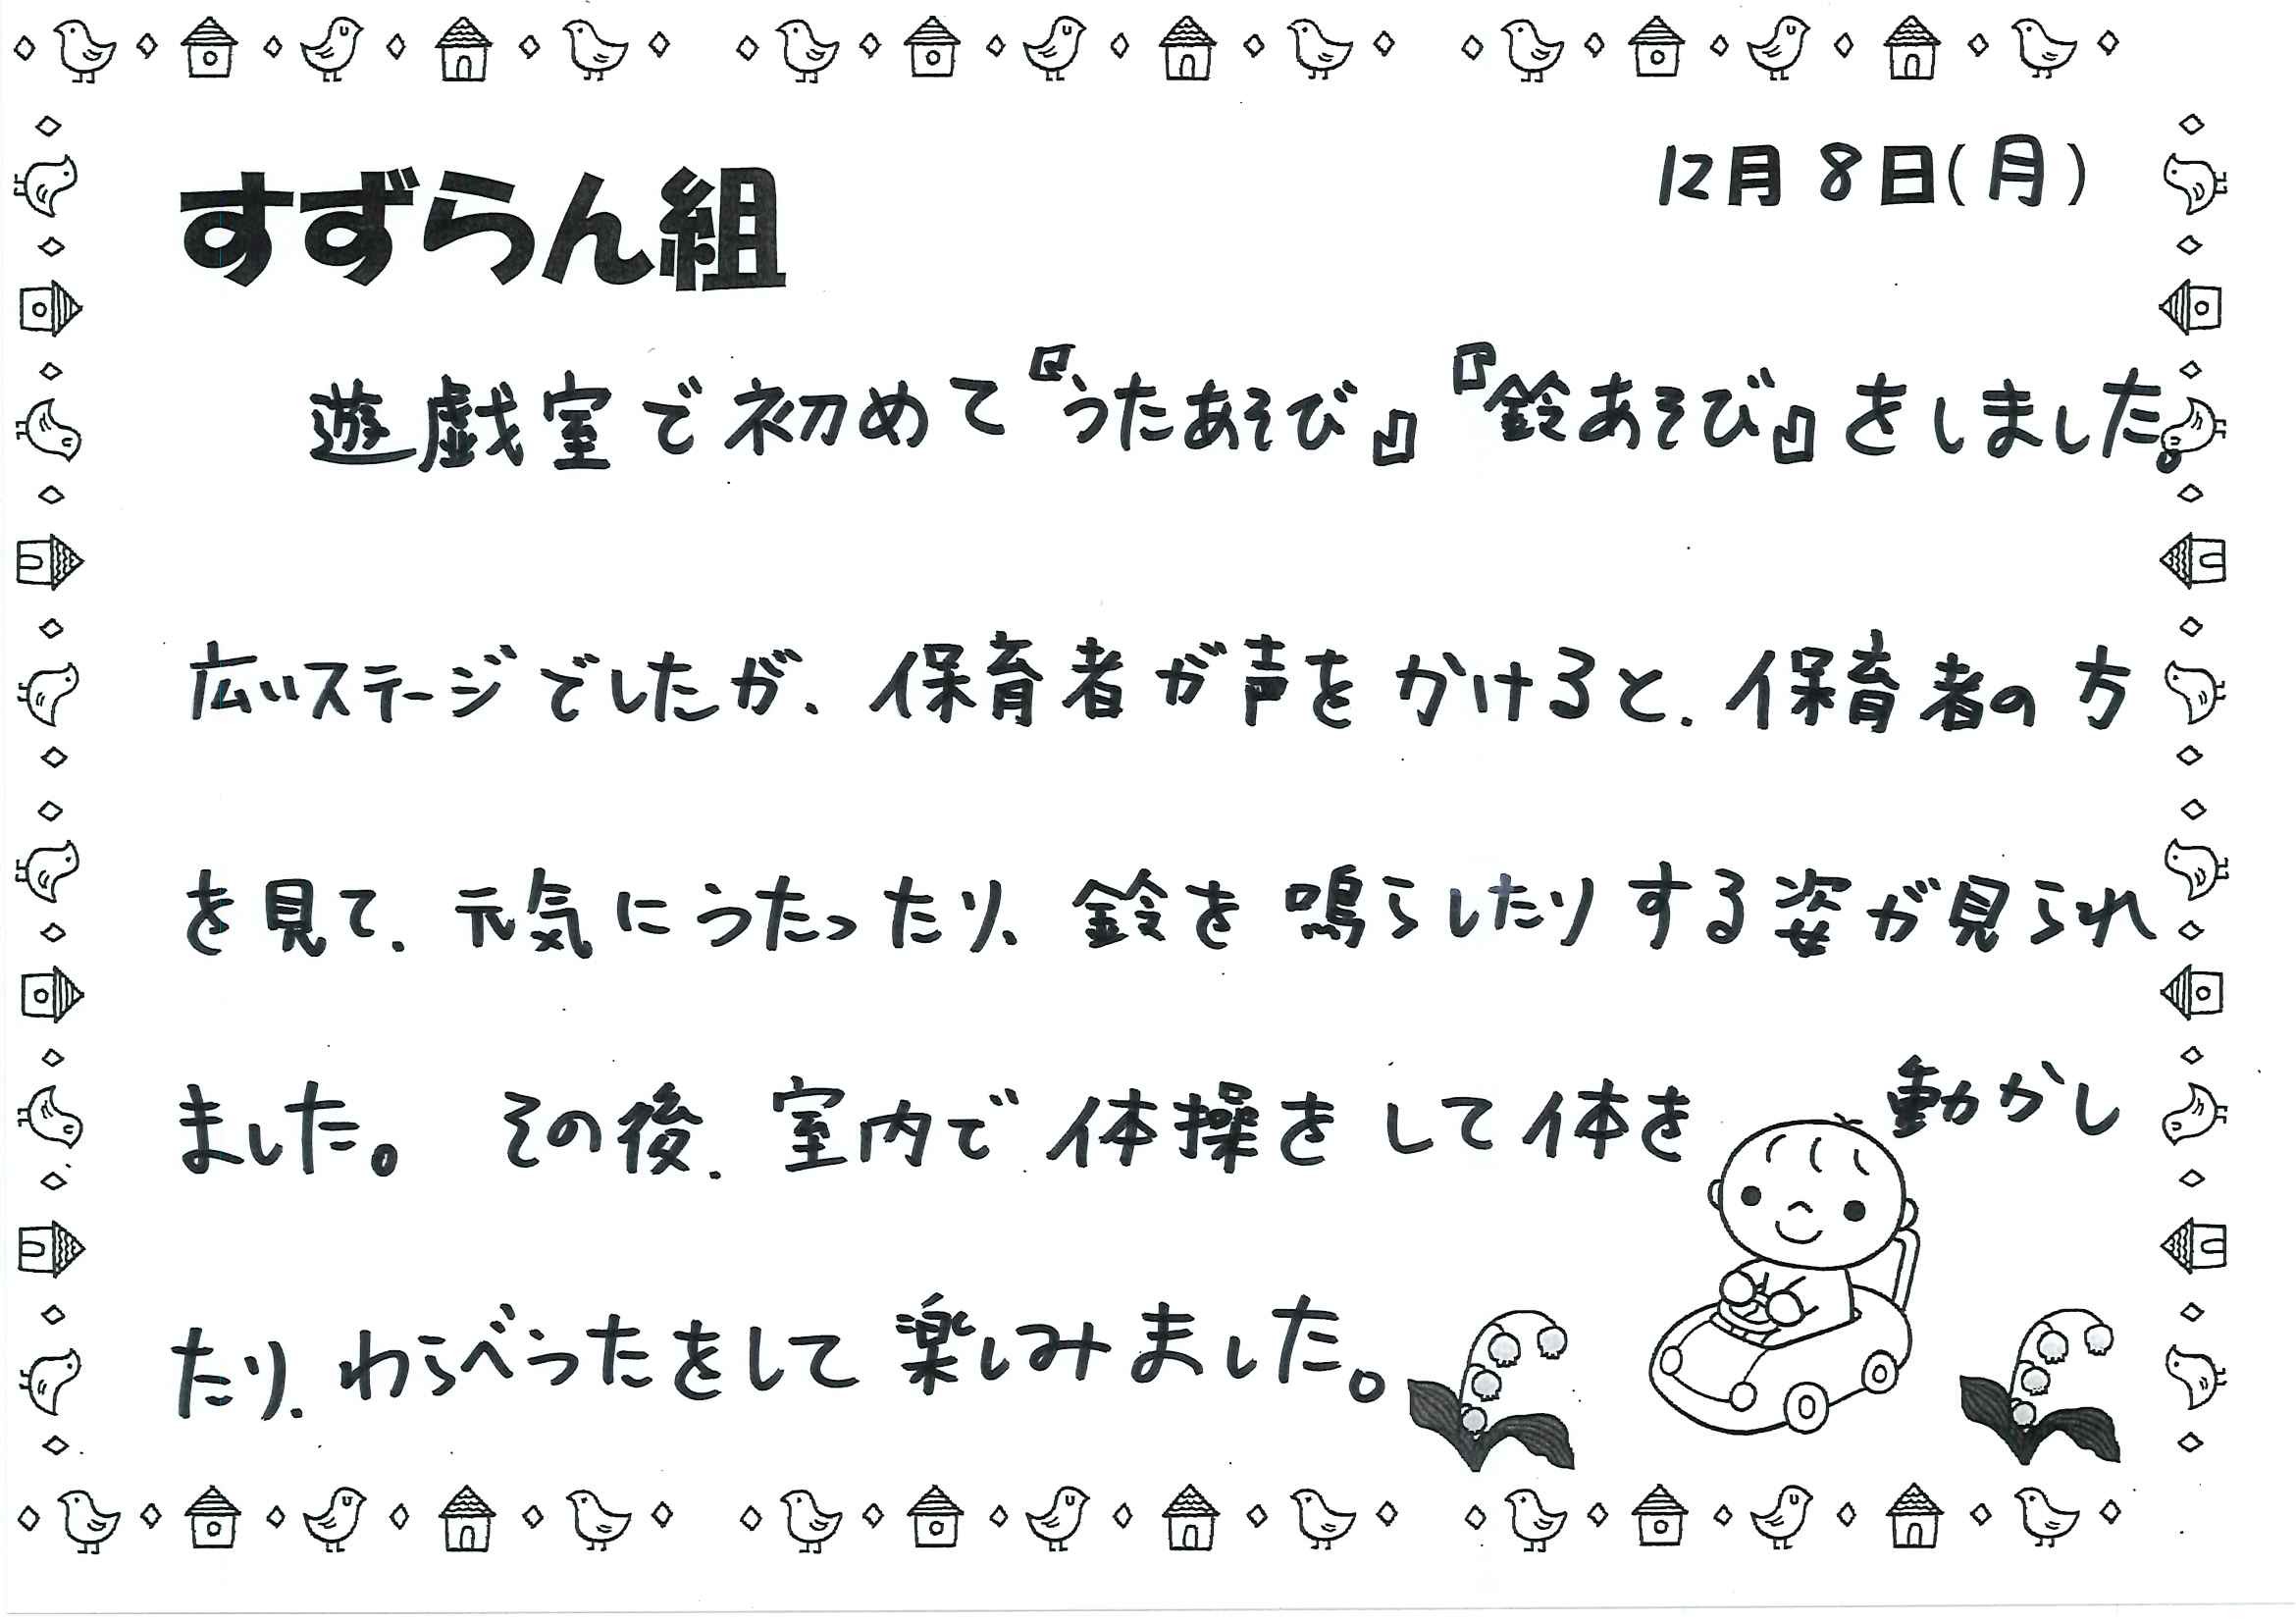 12月8日(月)
すずらん組
遊戯室で初めて『うたあそび』『鈴あそび』をしました。
広いステージでしたが、保育者が声をかけると、保育者の方
を見て、元気にうたったり、鈴を鳴らしたりする姿が見られ
ました。 その後、室内で体操をして体を動かし
たり、わらべうたをして楽しみました。